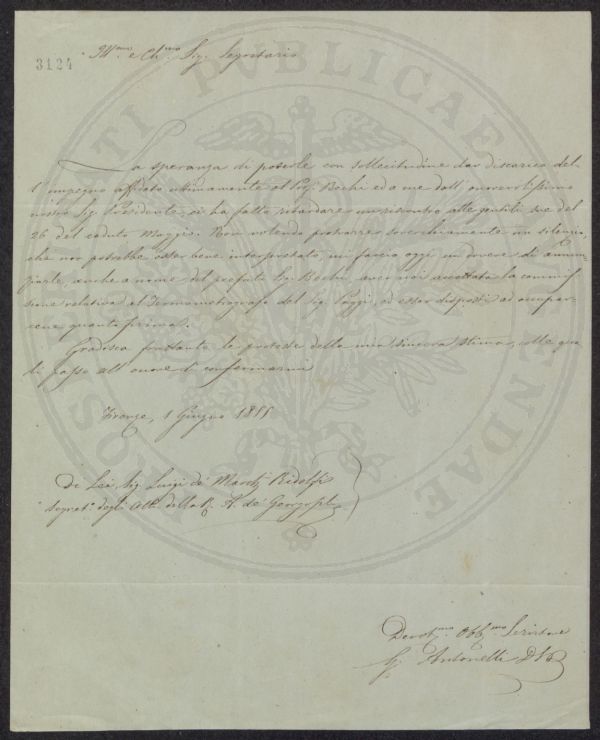 3124
Ill.mo e Ch.mo Sig. Segretario
La speranza di poterle con sollecitudine dar discarico del-
l'impegno affidato ultimamente al Prof. Bechi ed a me dall'onorevolissimo
nostro Sig. Presidente, ci ha fatto ritardare un riscontro alla gentile sua del
26 del caduto Maggio. Non volendo protrarre soverchiamente un silenzio,
che non potrebbe esser bene interpretato, mi faccio oggi un dovere di annun-
ziarle, anche a nome del prefato Sig. Bechi, aver noi accettata la commis-
sione relativa al Termometrografo del Sig. Poggi, ed esser disposti ad occupar-
cene quanto prima.
Gradisca frattanto le proteste della mia sincera stima, colle qua-
li passo all'onore di confermarmi
Firenze, 1 Giugno 1855
Di Lei, Sig. Luigi de' March. Ridolfi
Segret.o degli Atti della R. A. de' Georgofili
Devot.mo Obb.mo Servitore
G. Antonelli D.S.P.
PUBLICAE